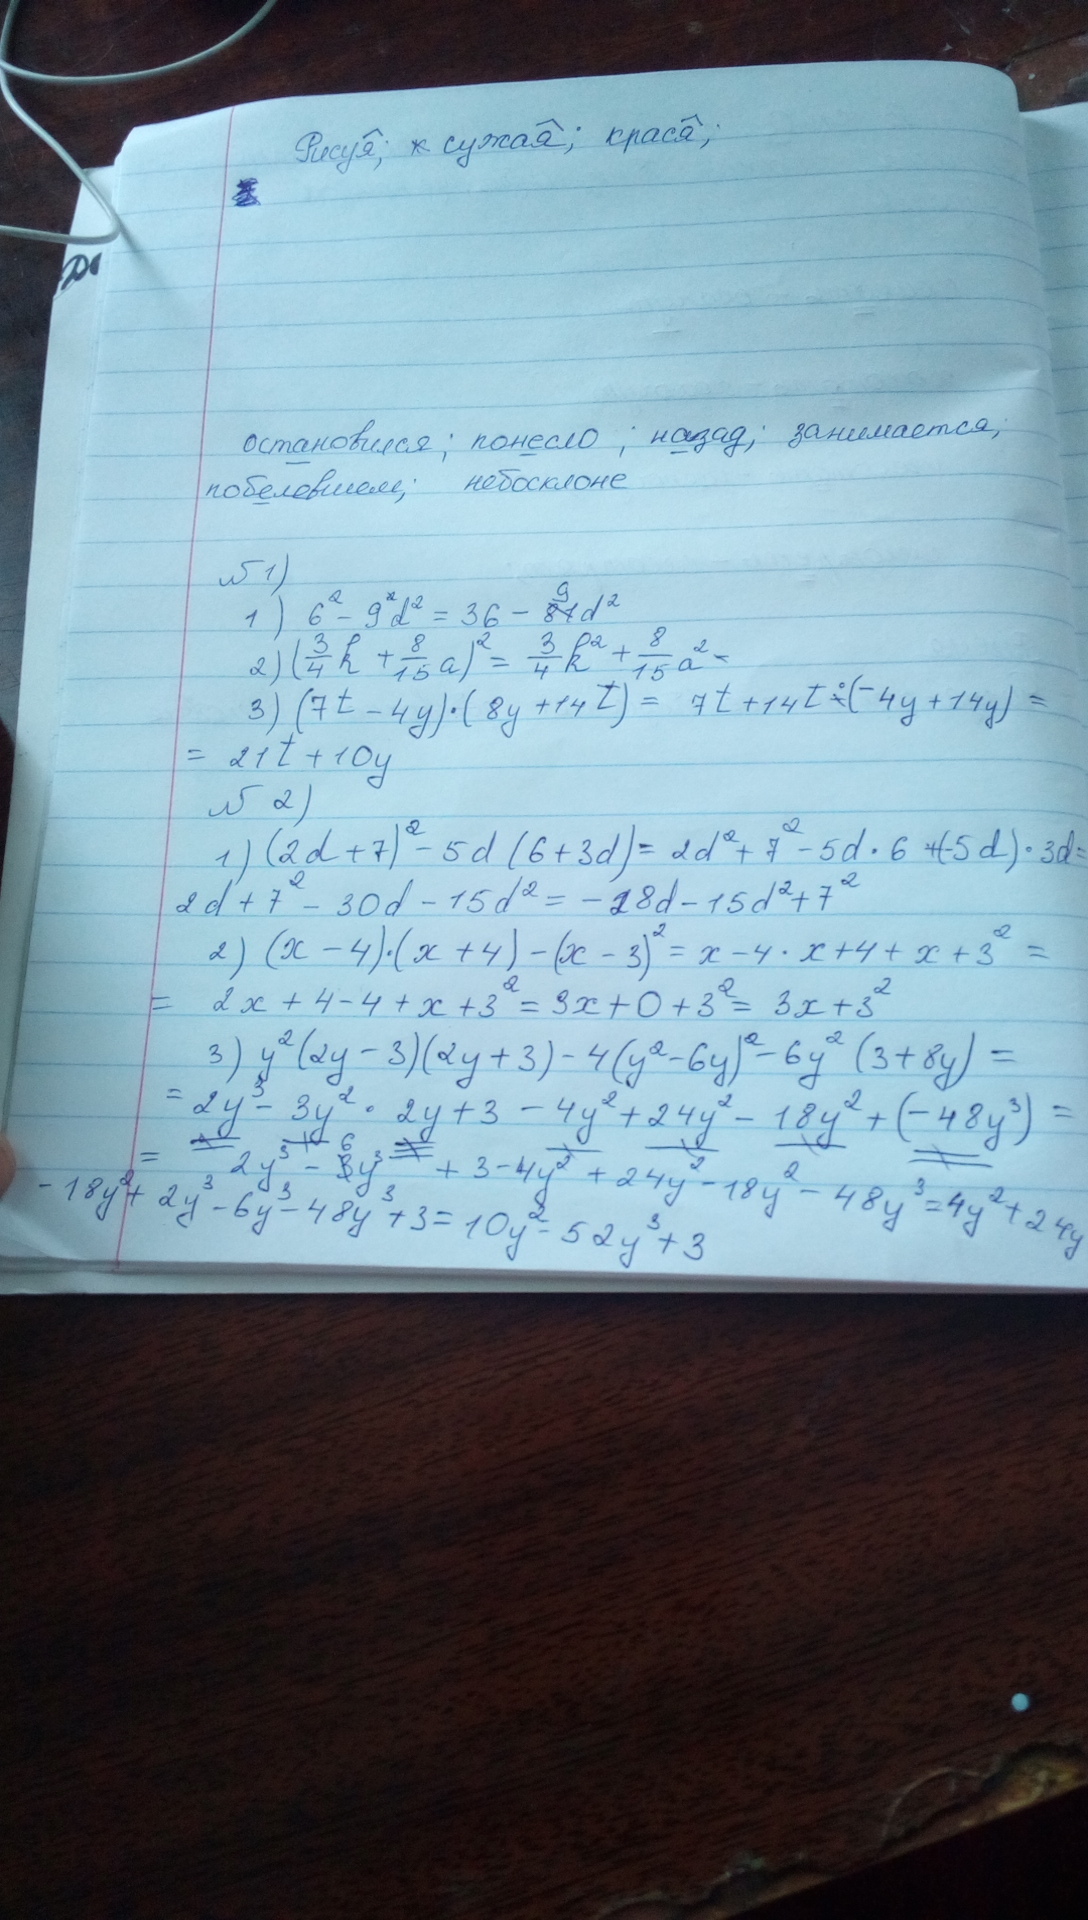 Рисуя; к сужая; крася;
остановился; понесло; назад; занимается;
побелевшем; небосклоне
№1)
1) 6² - 9²d² = 36 - 9d²
2) (3/4 k + 8/15 a)² = 3/4 k² + 8/15 a² -
3) (7t - 4y)·(8y + 14t) = 7t + 14t + (-4y + 14y) =
= 21t + 10y
№ 2)
1) (2d + 7)² - 5d (6 + 3d) = 2d² + 7² - 5d · 6 + (-5d) · 3d =
2d + 7² - 30d - 15d² = -28d - 15d² + 7²
2) (x - 4)·(x + 4) - (x - 3)² = x - 4 · x + 4 + x + 3² =
= 2x + 4 - 4 + x + 3² = 3x + 0 + 3² = 3x + 3²
3) y² (2y - 3)(2y + 3) - 4(y² - 6y)² - 6y² (3 + 8y) =
= 2y³ - 3y² · 2y + 3 - 4y² + 24y² - 18y² + (-48y³) =
= 2y³ - 6y³ + 3 - 4y² + 24y² - 18y² - 48y³ = 4y² + 24y
- 18y² + 2y³ - 6y³ - 48y³ + 3 = 10y² - 52y³ + 3